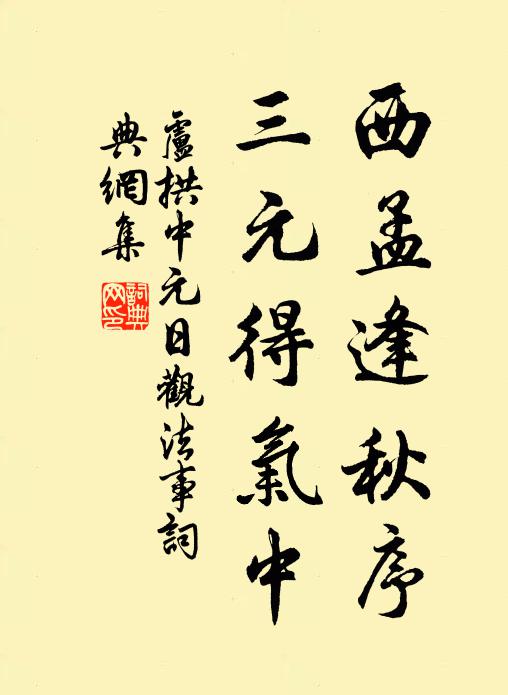 西孟逢秋序
三元得氣中
盧拱中元日觀法事詞
典網集
詞典網印